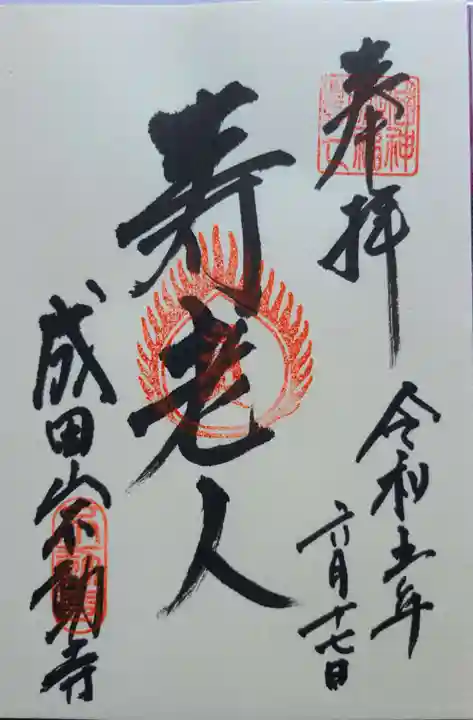 奉拝
令和五年
六月十七日
寿老人
成田山不動寺